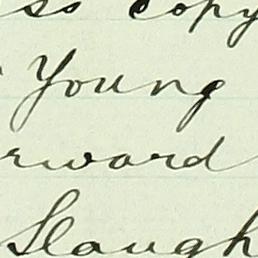 ss copy
Young
rward
Slaugh